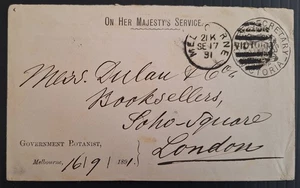 ON HER MAJESTY'S SERVICE.
MELBOURNE
21K
SE 17
91
SECRETARY
VICTORIA
VICTORIA
Messrs. Dulau & Co.,
Booksellers,
Soho-Square
London
GOVERNMENT BOTANIST,
Melbourne, 16/9/1891